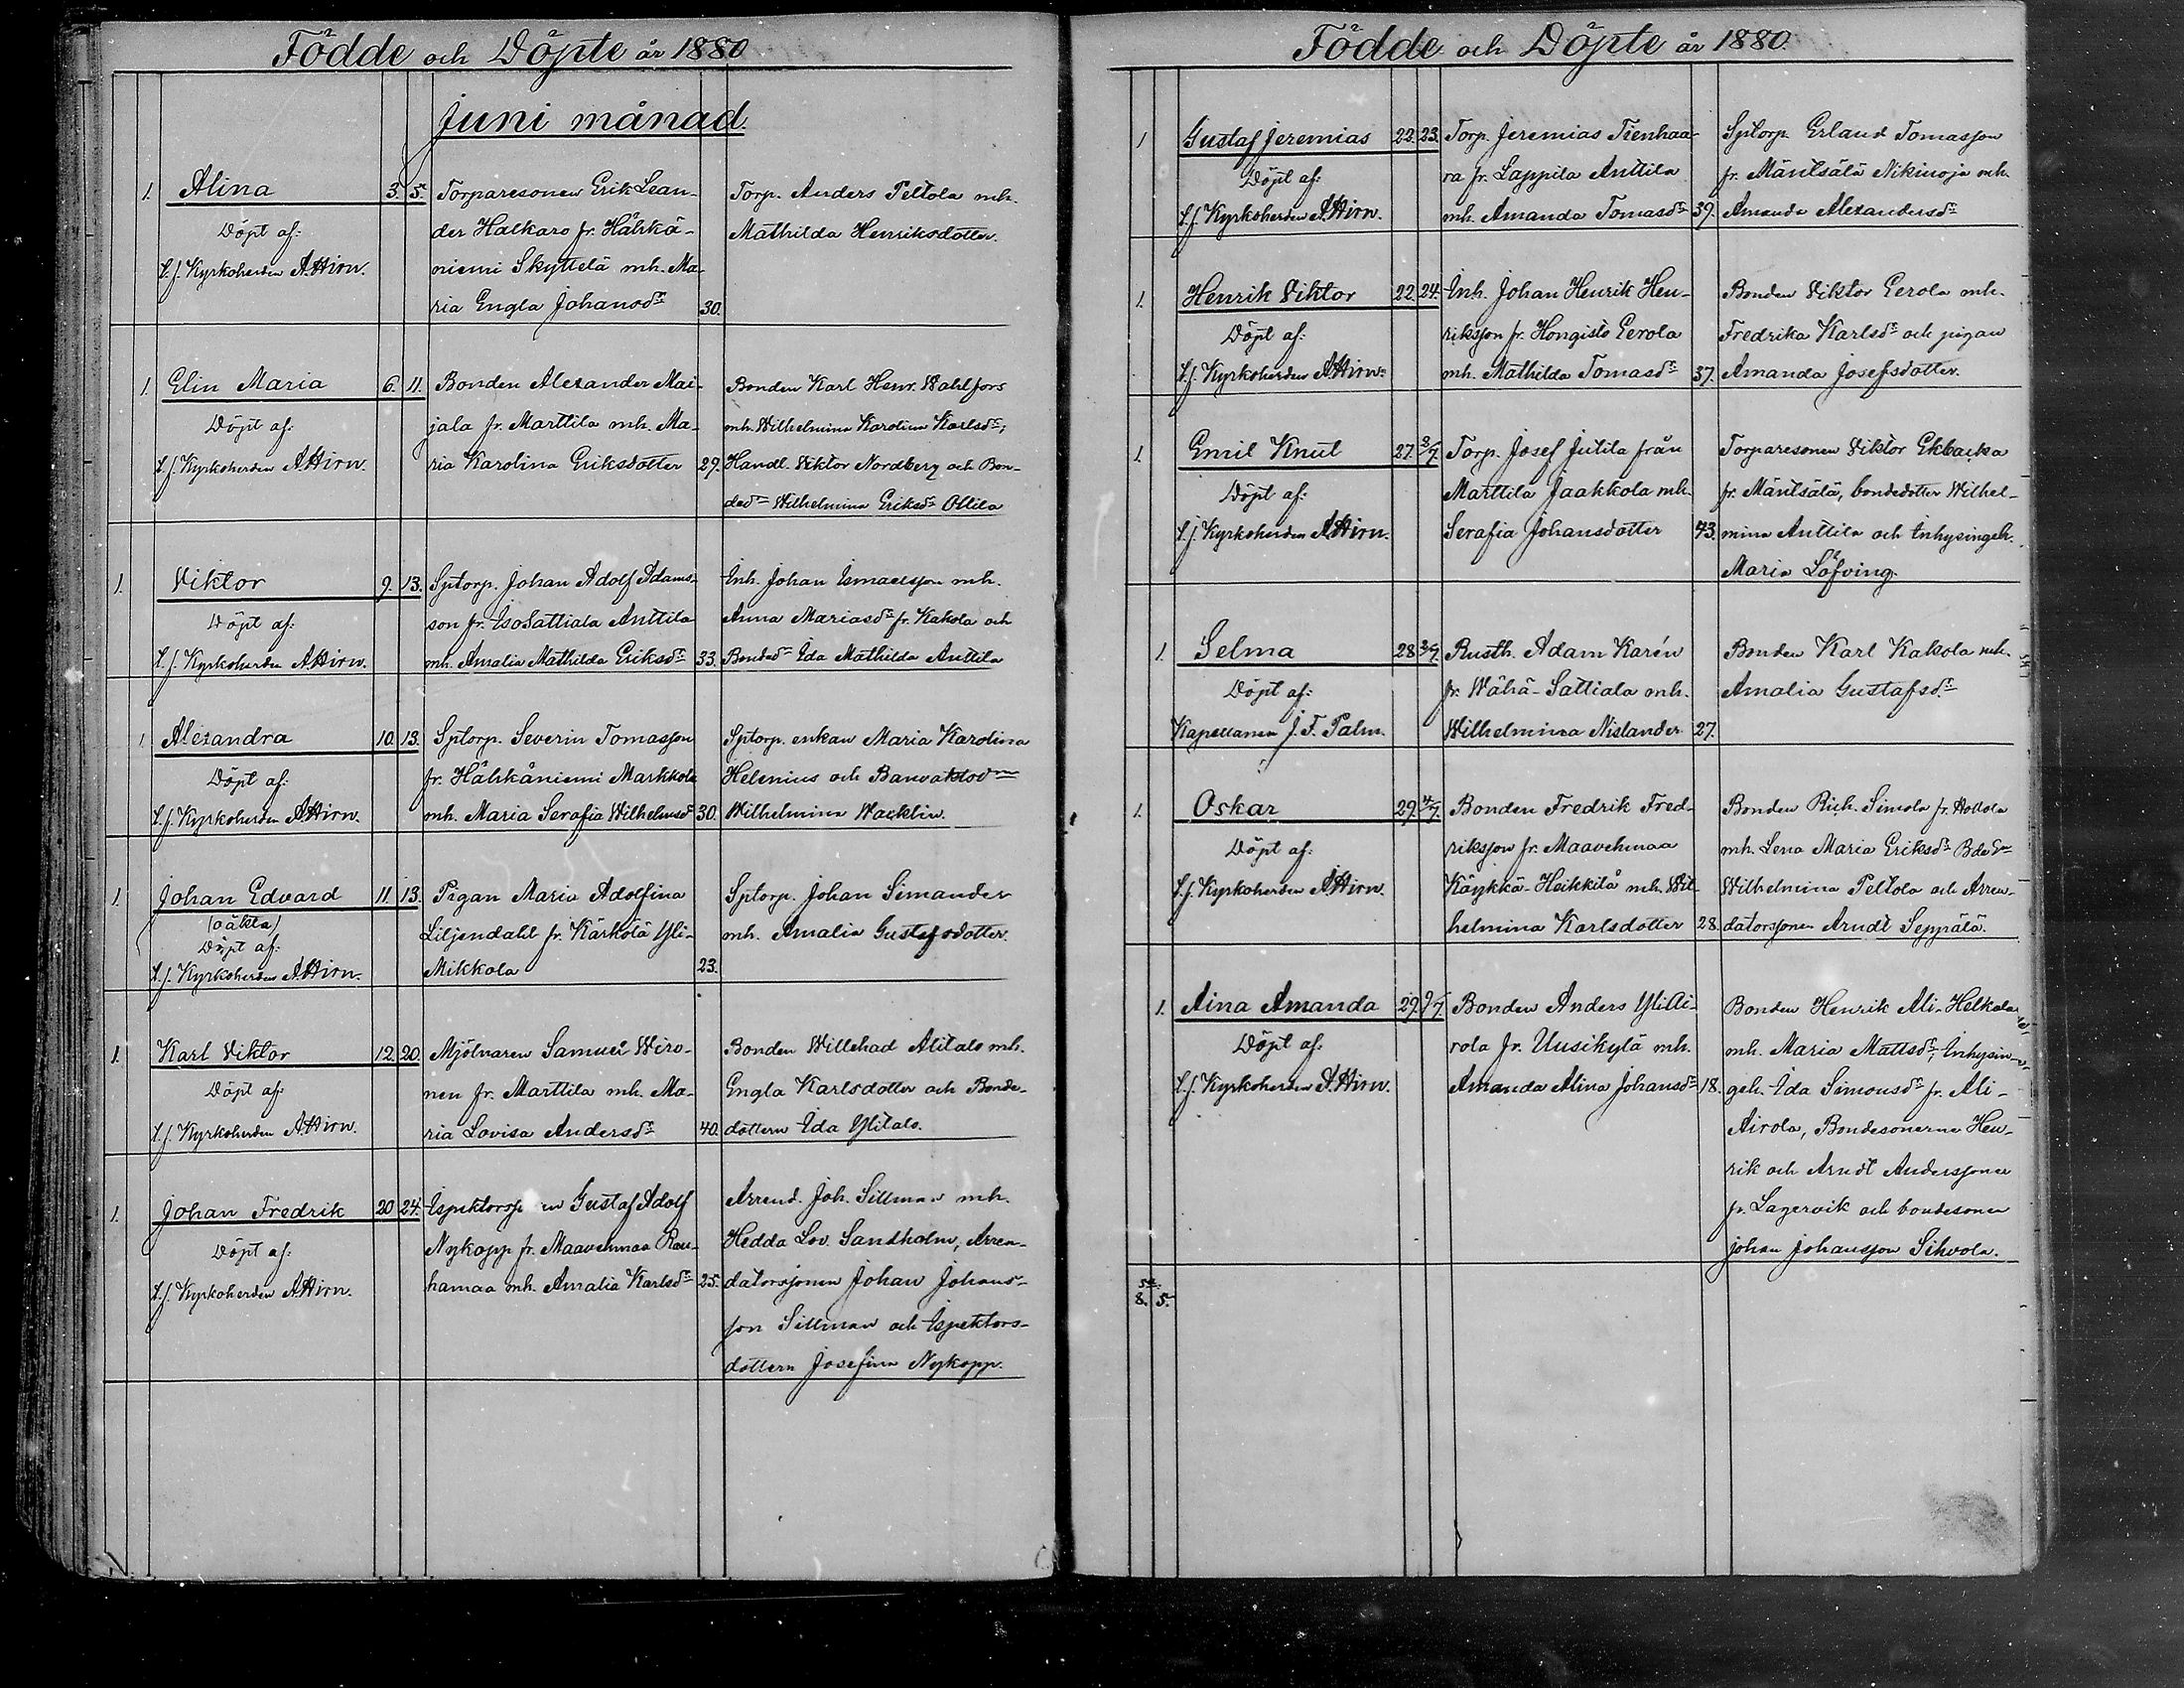 Födde och Döpte år 1880
Juni månad.
1. Alina 3. 5. Torparesonen Erik Lean- Torp. Anders Peltola mh.
Döpt af: der Halkaro fr. Hähkä- Mathilda Henriksdotter.
t.f. Kyrkoherden A. Hirn. niemi Skyttelä mh. Ma-
ria Engla Johansdr 30.
1. Elin Maria 6. 11. Bonden Alexander Mai- Bonden Karl Henr. Wahlfors
Döpt af: jala fr. Marttila mh. Ma- mh. Wilhelmina Karolina Karlsdr;
t.f. Kyrkoherden A. Hirn. ria Karolina Eriksdotter 29. Handl. Viktor Nordberg och Bon-
dedr Wilhelmina Eriksdr Ollila
1. Viktor 9. 13. Sptorp. Johan Adolf Adams- Inh. Johan Ismaelsson mh.
Döpt af: son fr. Iso Sattiala Anttila Anna Mariasdr fr. Kakola och
t.f. Kyrkoherden A. Hirn. mh. Amalia Mathilda Eriksdr 33. Bondedr Ida Mathilda Anttila
1 Alexandra 10. 13. Sptorp. Severin Tomasson Sptorp. enkan Maria Karolina
Döpt af: fr. Hähkäniemi Markkola Helenius och
t.f. Kyrkoherden A. Hirn. mh. Maria Serafia Wilhelmsdr 30. Wilhelmina Wacklin.
1. Johan Edvard 11. 13. Pigan Maria Adolfina Sptorp. Johan Simander
(oäkta)
Döpt af: Liljendahl fr. Kärkölä Yli- mh. Amalia Gustafsdotter.
t.f. Kyrkoherden A. Hirn. Mikkola 23.
1. Karl Viktor 12. 20. Mjölnaren Samuel Wiro- Bonden Willehad Alitalo mh.
Döpt af: nen fr. Marttila mh. Ma- Engla Karlsdotter och Bonde-
t.f. Kyrkoherden A. Hirn. ria Lovisa Andersdr 40. dottern Ida Ylitalo.
1. Johan Fredrik 20 24. Gustaf Adolf Arrend. Joh. Sillman mh.
Döpt af: Nykopp fr. Maavehmaa Rau- Hedda Lov. Sandholm, Arren-
t.f. Kyrkoherden A. Hirn. hamaa mh. Amalia Karlsdr 25. datorsonen Johan Johans-
son Sillman och Ispektors-
dottern Josefina Nykopp.
Födde och Döpte år 1880.
1 Gustaf Jeremias 22. 23. Torp. Jeremias Tienhaa- Sptorp. Erland Tomasson
Döpt af: ra fr. Lappila Anttila fr. Mäntsälä Nikinoja mh.
t.f. Kyrkoherden A. Hirn. mh. Amanda Tomasdr 39. Amanda Alexandersdr
1. Henrik Viktor 22. 24. Inh. Johan Henrik Hen- Bonden Viktor Eerola mh.
Döpt af: riksson fr. Hongisto Eerola Fredrika Karlsdr och pigan
t.f. Kyrkoherden A. Hirn. mh. Mathilda Tomasdr 37. Amanda Josefsdotter.
1. Emil Knut 27. 3/7. Torp. Josef Jutila från Torparesonen Viktor Ekbacka
Döpt af: Marttila Jaakkola mh. fr. Mäntsälä, bondedotter Wilhel-
t.f. Kyrkoherden A. Hirn. Serafia Johansdotter 43. mina Anttila och Inhysingeh.
Maria Löfving.
1. Selma 28 3/7. Rusth. Adam Karén Bonden Karl Kakola mh.
Döpt af: fr. Wähä-Sattiala mh. Amalia Gustafsdr
Kapellanen J. F. Palm. Wilhelmina Nislander 27.
1. Oskar 29. 4/7. Bonden Fredrik Fred- Bonden Rich. Simola fr. Hollola
Döpt af: riksson fr. Maavehmaa mh. Lena Maria Eriksdr
t.f. Kyrkoherden A. Hirn. Käykkä-Heikkilä mh. Wil- Wilhelmina Peltola och Arren-
helmina Karlsdotter 28. datorssonen Arndt Seppälä.
1. Aina Amanda 29. 9/7. Bonden Anders Yli Ai- Bonden Henrik Ali-Helkala
Döpt af: rola fr. Uusikylä mh. mh. Maria Mattsdr, Inhysin-
t.f. Kyrkoherden A. Hirn. Amanda Alina Johansdr 18. geh. Ida Simonsdr fr. Ali-
Airola, Bondesonerna Hen-
rik och Arndt Anderssoner
fr. Lagervik och bondesonen
Johan Johansson Sihvola.
8. 5.